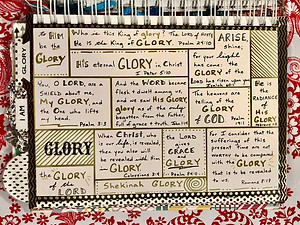 to HIM
be the
GLORY
Who is this King of glory? The LORD of Hosts
He is the King of GLORY. Psalm 24:10
HIS eternal GLORY in Christ
I Peter 5:10
ARISE,
Shine,
for your light has
come the
GLORY of the
LORD has risen
You, O LORD, are a
SHIELD about me,
My GLORY, and
the One who lifts
my head.
Psalm 3:3
And the WORD became
flesh + dwelt among us,
and we saw His GLORY,
glory as of the only
begotten from the Father,
full of grace + truth
The heavens
are telling
of the
GLORY
of GOD.
Psalm 19:1
He is
the
RADIANCE
of His
GLORY
I AM
GLORY
GLORY
When CHRIST, who
is our life, is
revealed, then you also
will be revealed with Him
in GLORY.
Colossians 3:4
the LORD
gives
GRACE
+
GLORY
Psalm
For I consider that the
sufferings of this
present time are not
worthy to be compared
with the GLORY
that is to be revealed
to us.
Romans 8:18
the GLORY
of the
LORD
Shekinah GLORY